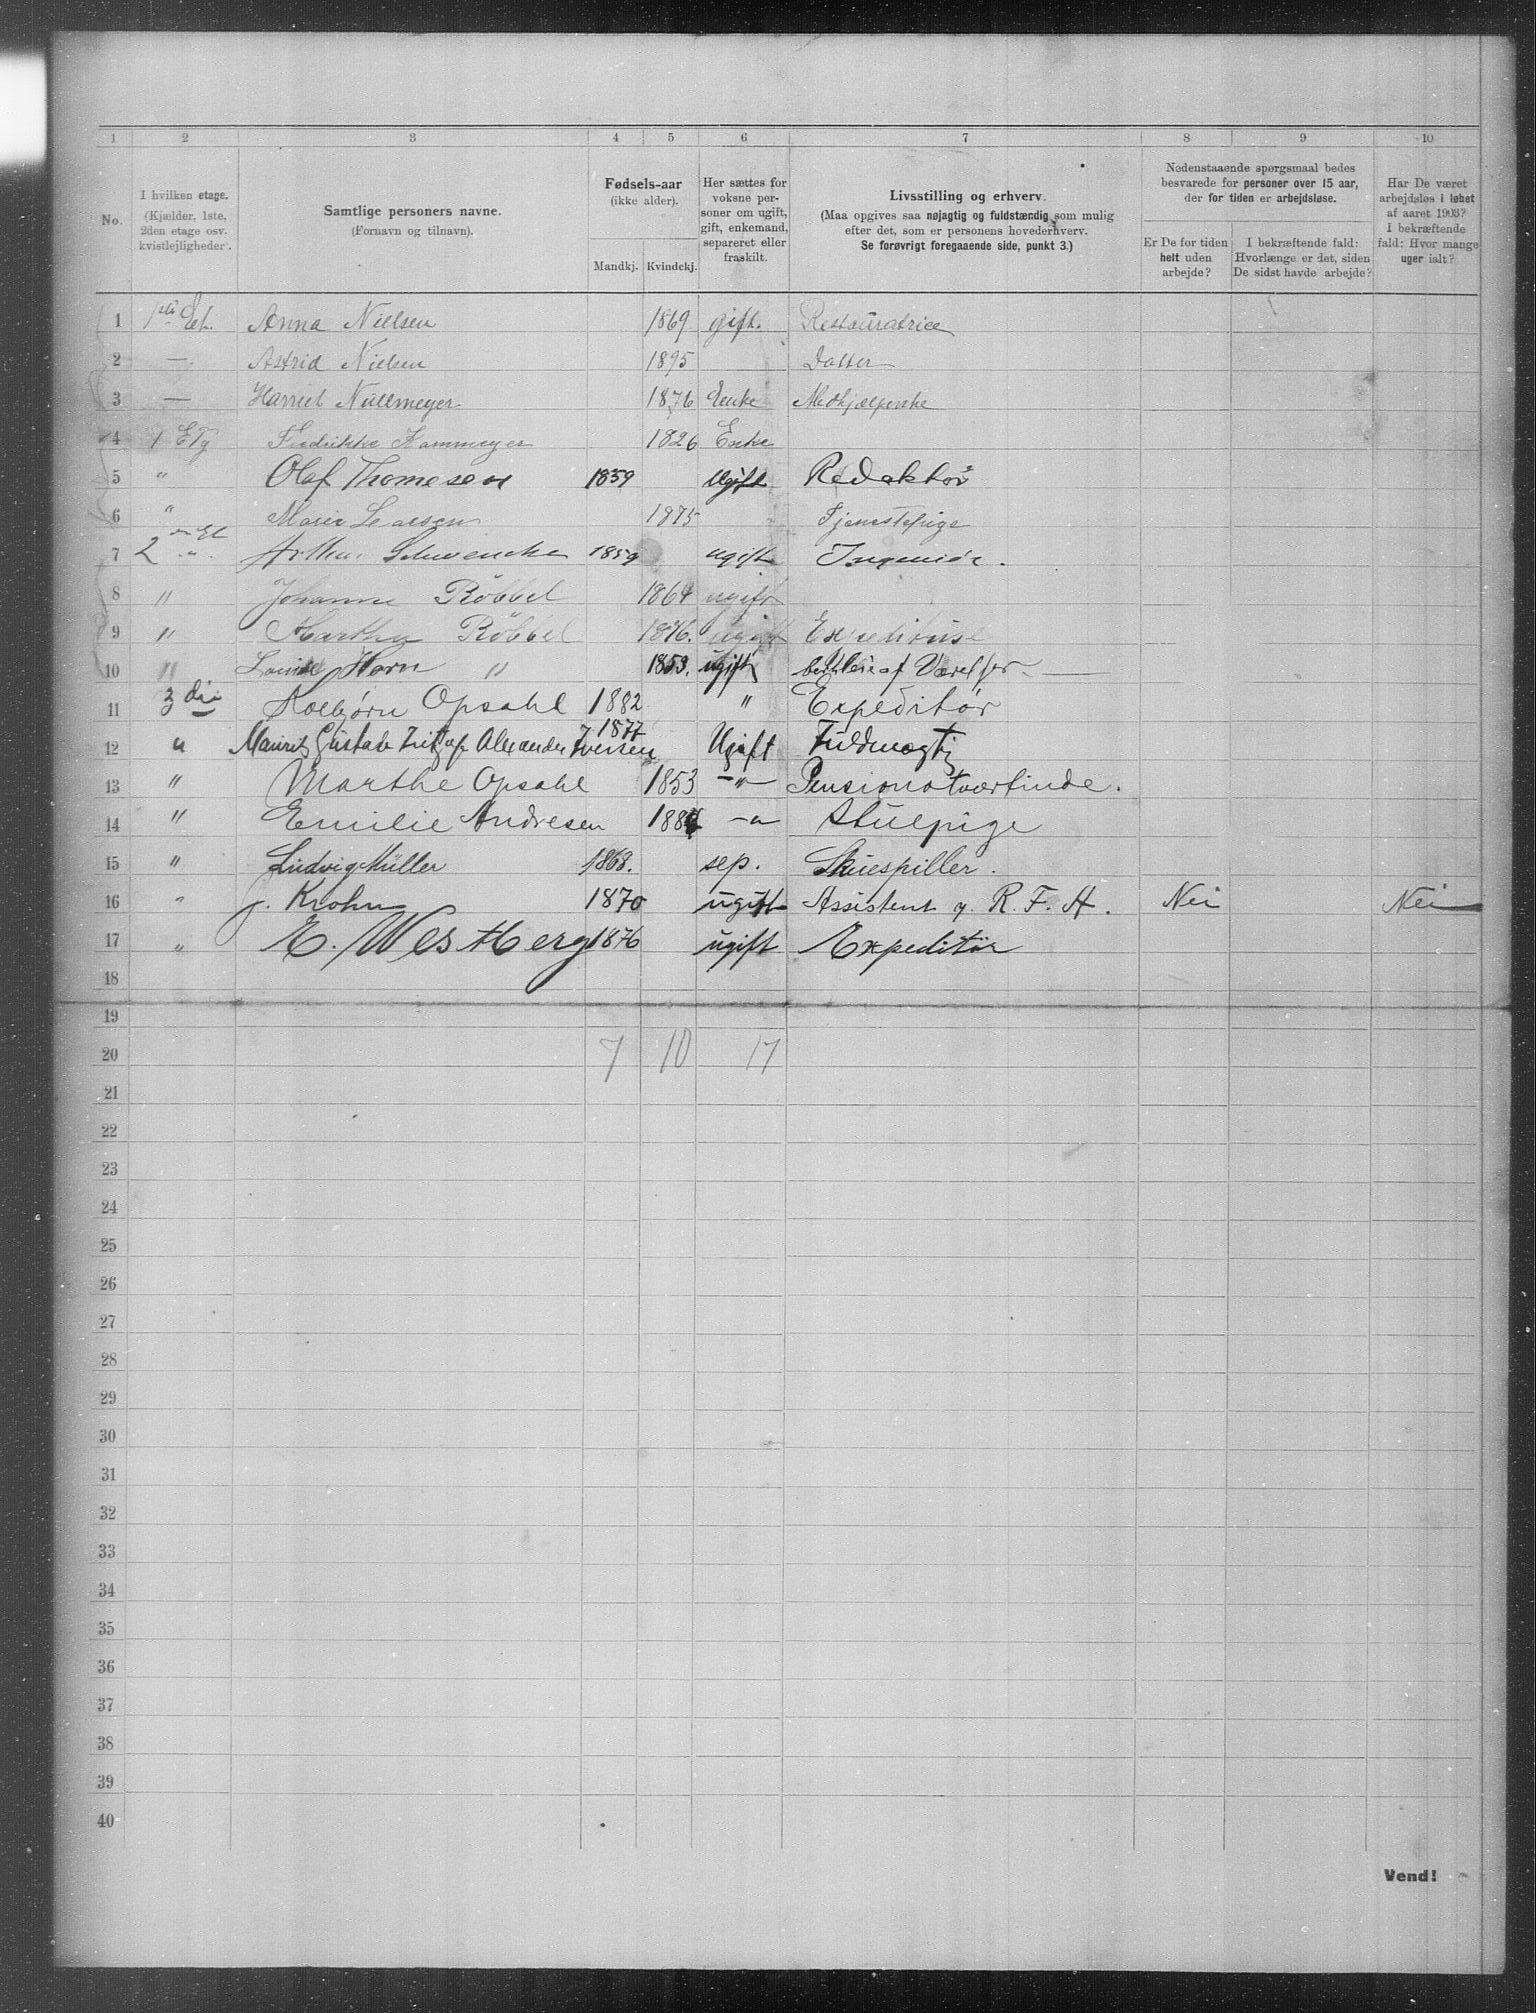 1 2 3 4 5 6 7 8 9 10
No.
I hvilken etage. (Kjælder, 1ste, 2den etage osv. kvistlejligheder).
Samtlige personers navne. (Fornavn og tilnavn).
Fødsels-aar (ikke alder).
Mandkj. Kvindekj.
Her sættes for voksne personer om ugift, gift, enkemand, separeret eller fraskilt.
Livsstilling og erhverv. (Maa opgives saa nøjagtig og fuldstændig som mulig efter det, som er personens hovederhverv. Se forøvrigt foregaaende side, punkt 3.)
Nedenstaaende spørgsmaal bedes besvarede for personer over 15 aar, der for tiden er arbejdsløse.
Er De for tiden helt uden arbejde?
I bekræftende fald: Hvorlænge er det, siden De sidst havde arbejde?
Har De været arbejdsløs i løbet af aaret 1903? I bekræftende fald: Hvor mange uger ialt?
1 1ste Et. Anna Nielsen 1869 gift. Restauratrice
2 — Astrid Nielsen 1895 Datter
3 — Harriet 1876 Enke Medhjælperske
4 1 Etg Fredrikke Kammeyer 1826 Enke
5 " Olaf Thomesen 1859 Ugift Redaktør
6 " Marie Larsen 1875 Tjenestepige
7 2 " Arthur Schwencke 1859 ugift Ingeniør.
8 " Johanne Röbbel 1864 ugift
9 " Martha Röbbel 1876. Ugift Expeditrise
10 " Louise Horn " 1853. ugift af Værelser
11 3 die Kolbjørn Opsahl 1882 " Expeditør
12 " Mauritz Gustaf Alexander Iversen 1877 Ugift Fuldmægtig
13 " Marthe Opsahl 1853 —"— Pensionatværtinde.
14 " Emilie Andresen 188 —" Stuepige
15 " Ludvig Müller 1868. sep. Skuespiller.
16 " J. Krohn 1870 ugift Assistent v. R. F. A. Nei Nei
17 " E. Westberg 1876 ugift Expeditør
18
19
20 7 10 17
21
22
23
24
25
26
27
28
29
30
31
32
33
34
35
36
37
38
39
40
Vend!